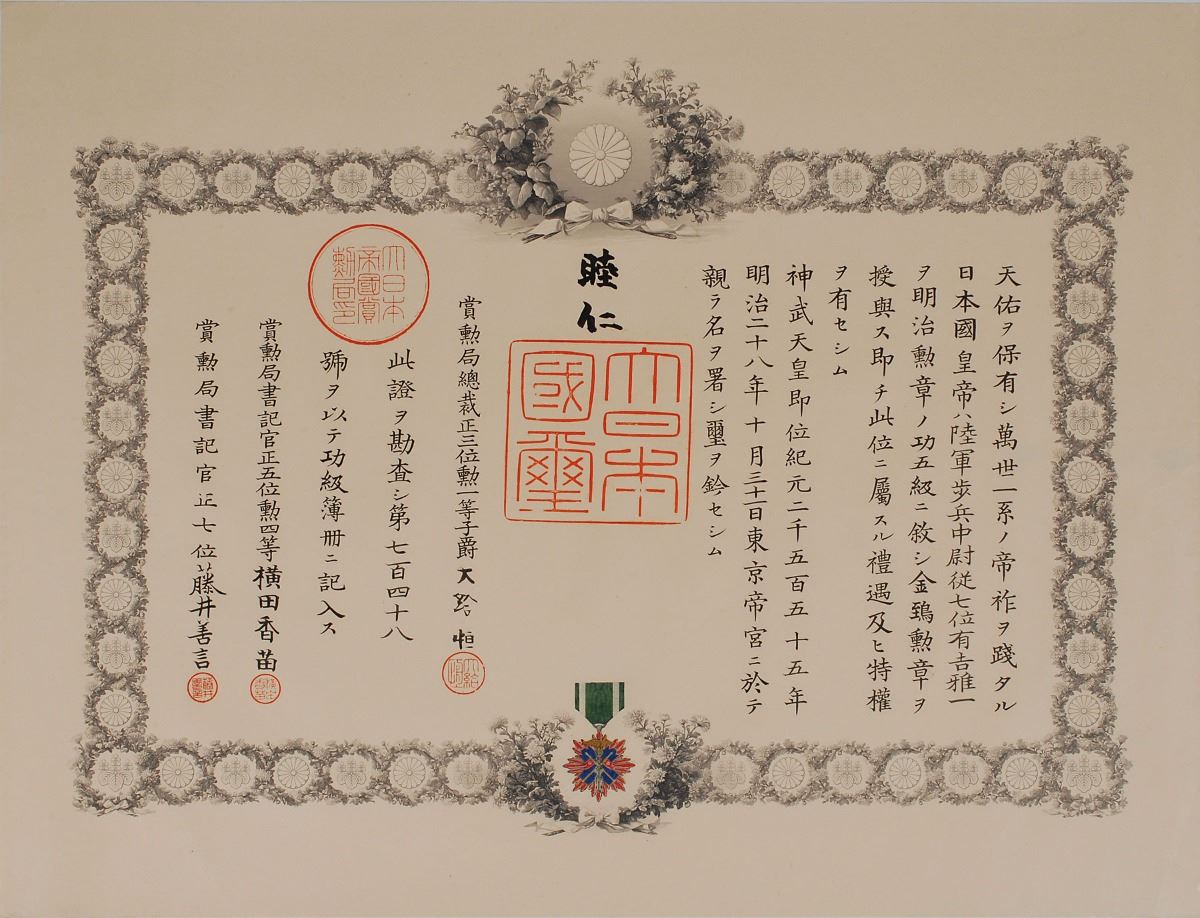 天佑ヲ保有シ萬世一系ノ帝祚ヲ踐タル
日本國皇帝ハ陸軍歩兵中尉従七位有吉雅一
ヲ明治勲章ノ功五級ニ敘シ金鵄勲章ヲ
授與ス即チ此位ニ屬スル禮遇及ヒ特權
ヲ有セシム
神武天皇即位紀元二千五百五十五年
明治二十八年十月三十一日東京帝宮ニ於テ
親ラ名ヲ署シ璽ヲ鈐セシム
睦仁
大日本國璽
賞勲局總裁正三位勲一等子爵大給恒
大給恒
此證ヲ勘査シ第七百四十八
號ヲ以テ功級簿冊ニ記入ス
大日本帝國賞勲局印
賞勲局書記官正五位勲四等横田香苗
賞勲局書記官正七位藤井善言